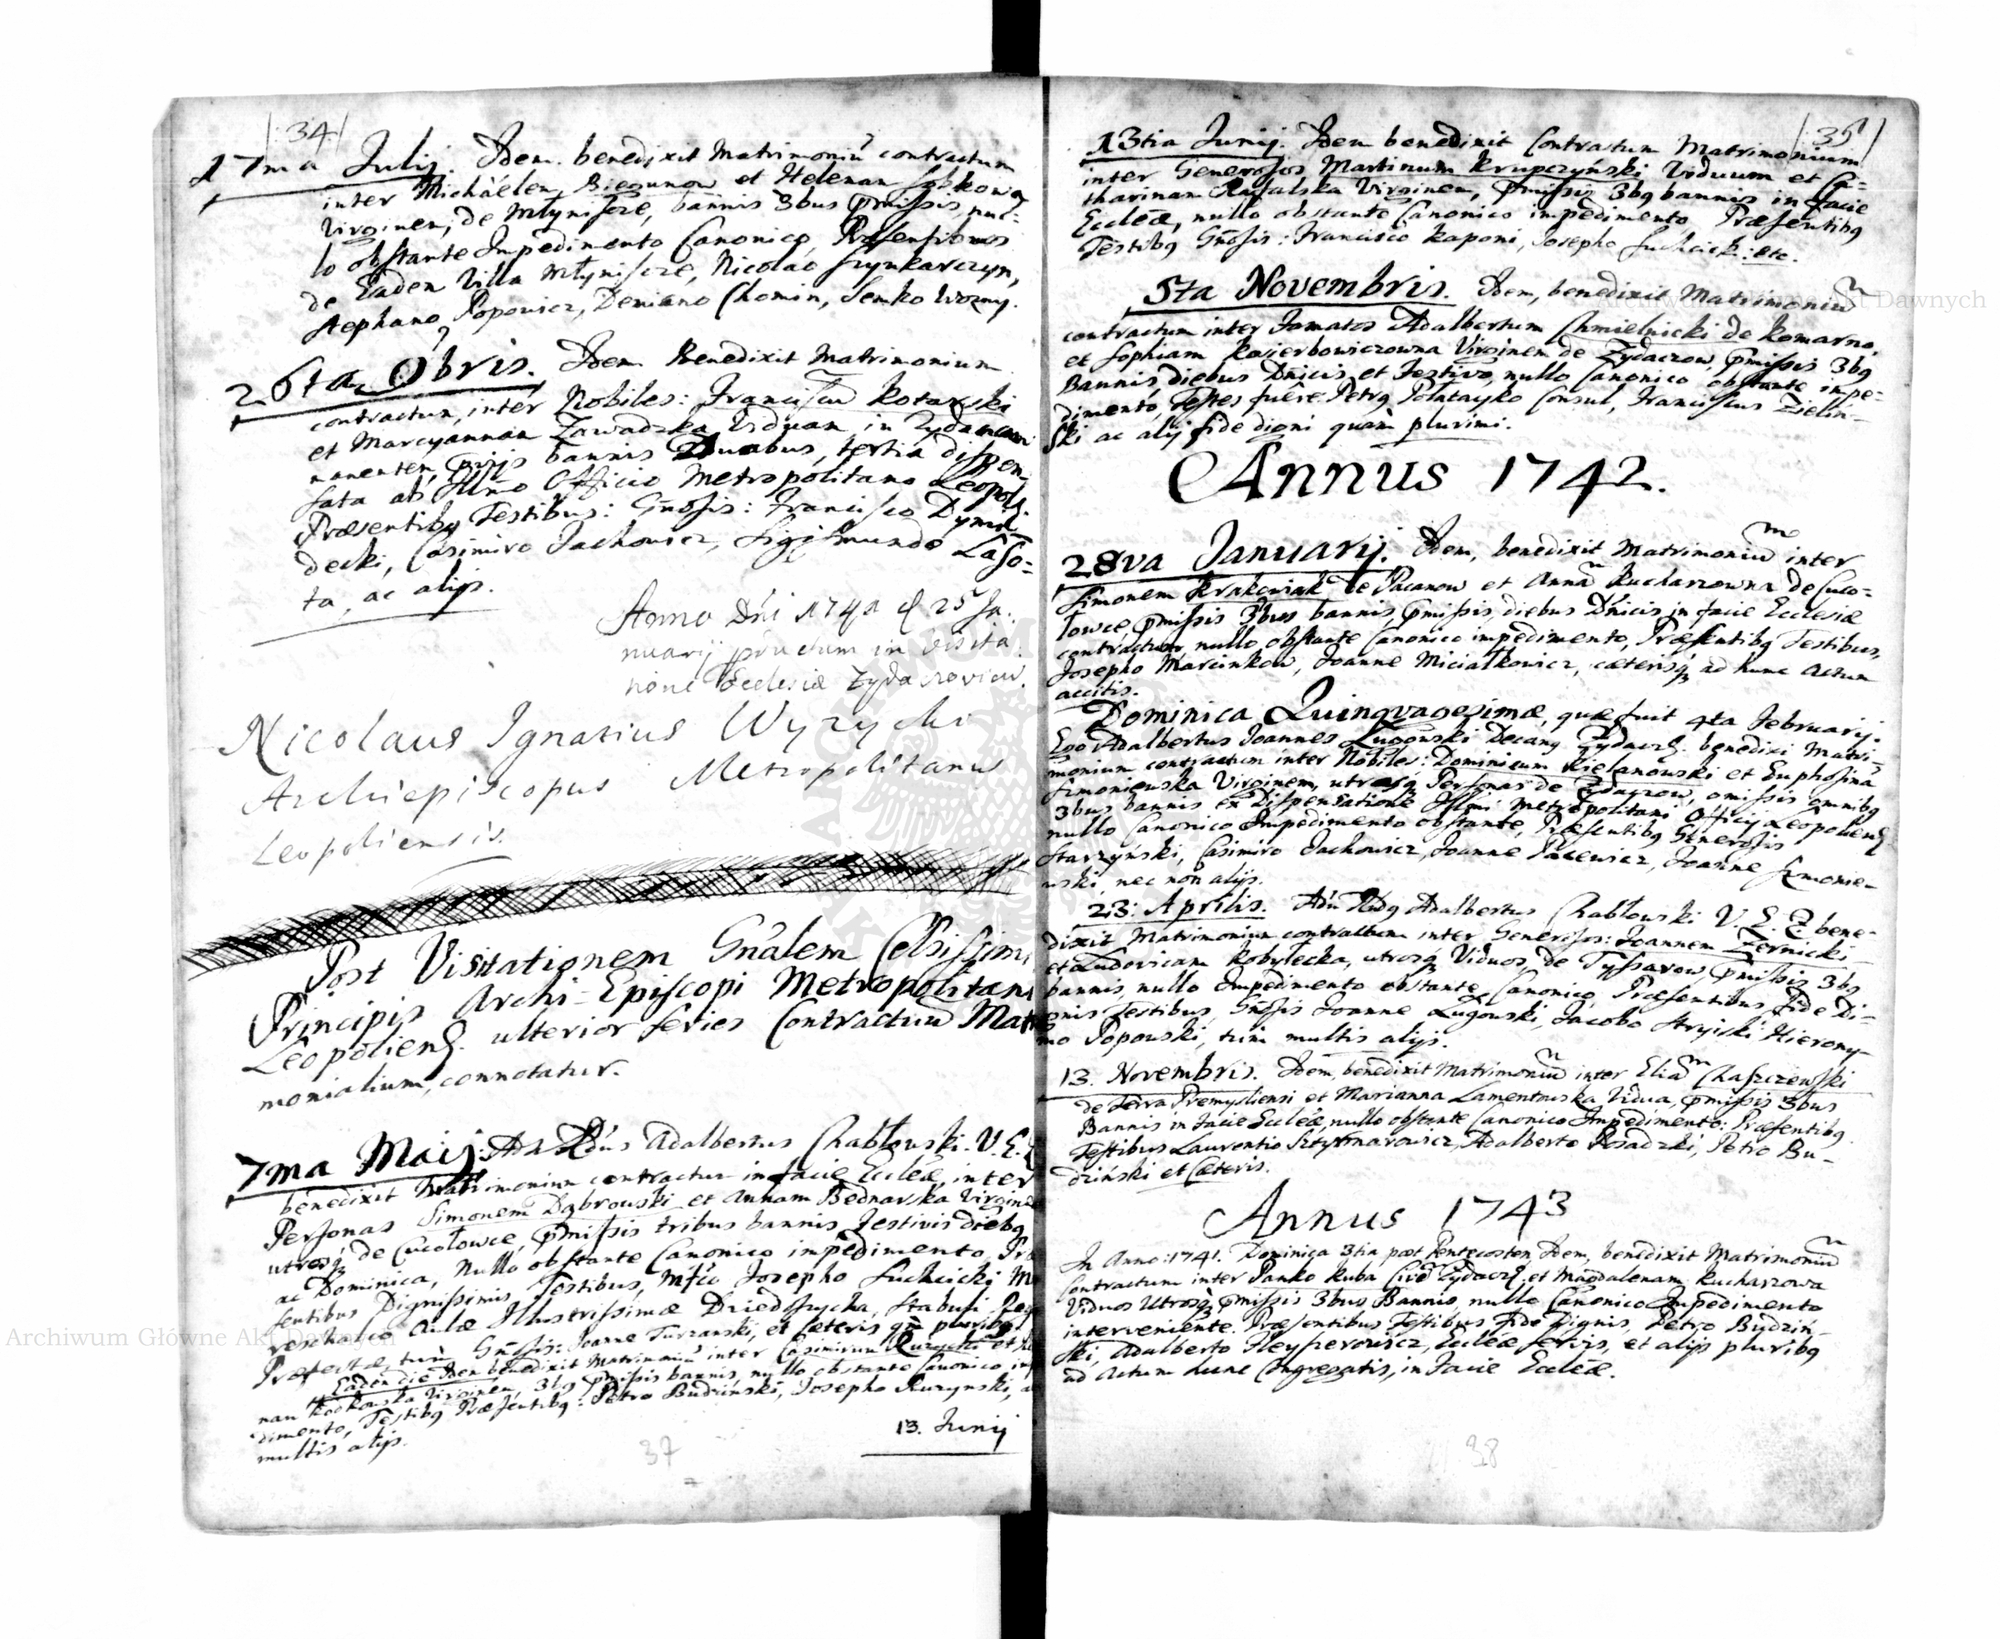 |: 34 :|
17ma Julij. Idem benedixit Matrimoniũ contractum
inter Michaëlem Biegunow et Helenam
Virginem, de Młynisze, bannis 3bus p̃missis, nul-
lo obstante Impedimento Canonico, Præsentibus
de Eadem Villa Młynisze, Nicolao Szynkarczyn,
Stephano Popowicz, Demiano Chomin, Semko Wozny.
26ta Obris. Idem Benedixit Matrimonium
contractum, inter Nobiles: Franciscũ Kotarski
et Marcyannam Zawadzka Viduam in
manentem, bannis Duabus, tertia dispen-
sata ab Illm̃o Officio Metropolitano Leopol:
Præsentibq Testibus: Gñosis: Francisco Dymi-
decki, Casimiro Jachowicz, Sigismundo Laso-
ta, ac alijs.
Anno Dñi 1741 d 25 Ja-
nuarij in Visita
tione Ecclesiæ Zydaczovien.
Nicolaus Ignatius Wyzycki
Archiepiscopus Metropolitanus
Leopoliensis.
Post Visitationem Gñalem Celsissimi
Principis Archi-Episcopi Metropolitani
Leopolien̄. ulterior Series Contractuũ Matri
monialium, connotatur.
7ma Maij. Adm Rdus Adalbertus Chablowski V. E.
benedixit Matrimonium contractum in facie Eccleæ, inter
Personas Simonem Dąbrowski et Annam Bednarska Virginem
utrosq de Cucołowce, p̃missis tribus bannis Festivis diebq
ac Dominica, Nullo obstante Canonico impedimento, Præ
sentibus Dignissimis Testibus, Josepho Suchcicki
reschalco Aulæ Illustrissimæ Dzieduszycka, Stabuli
Præfectæ, Gñosis: Joanne Turzanski, et Cæteris pluribq.
Eadem die Idem benedixit Matrimoniũ inter Casimirum
nam Kockowska Virginem, 3bq p̃missis bannis, nullo obstante Canonico imp
dimento, Testibq Præsentibq: Petro Budzinski, Josepho Kurzynski,
multis alijs.
13. Junij
37
|: 35 :|
13tia Junij. Idem benedixit Contractum Matrimonium
inter Generosos Martinum Krupczyński Viduum et Ca-
tharinam Rafalska Virginem, p̃missis 3bq bannis in facie
Eccleæ, nullo obstante Canonico impedimento, Præsentibq
Testibq Gñosis: Francisco Kaponi, Josepho Suchcicki etc.
5ta Novembris. Idem, benedixit Matrimoniũ
contractum inter Famatos Adalbertum Chmielnicki de Komarno,
et Sophiam Kasierbowiczowna Virginem de Zydaczow, p̃missis 3bq
Bannis, diebus Dñicis et Festivo, nullo Canonico obstante impe-
dimento, Testes fuêre Petrq Połatayko Consul, Franciscus Zielin-
ski ac alij fide digni quàm plurimi.
Annus 1742.
28va Januarij. Idem, benedixit Matrimoniũ inter
Simonem Krakowiak de Pacanow et Annã Kucharzowna de Cuco-
lowce p̃missis 3bus bannis, p̃missis, diebus Dñicis, in facie Ecclesiæ
contractum, nullo obstante Canonico impedimento, Præsentibq Testibus,
Josepho Marcinkow, Joanne Miciałkowicz, cæterisq ad hunc actum
accitis.
Dominica Quinqvagesimæ, quæ fuit 4ta Februarij.
Ego Adalbertus Joannes Lugoński Decanq Zydacz. benedixi Matri-
monium contractum inter Nobiles: Dominicum Kielanowski et Euphosina
Simoniewska Virginem, utrasq Personas de Zydaczow, omissis omnibq
3bus bannis ex Dispensatione Illmi Metropolitani Officij Leopolien̄
nullo Canonico Impedimento obstante, Præsentibq Generosis
Starzyński, Casimiro Jachowicz, Joanne Pacewicz, Joanne Simonie-
wski, nec non alijs.
23: Aprilis. Adm Rdq Adalbertus Chablowski V. E. Z. bene-
dixit Matrimonium contractum inter Generosos: Joannem Zernicki
et Ludovicam Kobyłecka, utrosq Viduos, de Tyssarow, p̃missis 3bq
bannis, nullo Impedimento obstante Canonico, Præsentibus Fide Di-
gnis Testibus, Gñosis Joanne Lugowski, Jacobo Stryiski Hierony-
mo Popowski, tum multis alijs.
13. Novembris. Idem, benedixit Matrimoniũ inter Eliam Chaszczewski
de Terra Premysliensi et Marianna Lamentowska Vidua, p̃missis 3bus
Bannis in Facie Eccleæ, nullo obstante Canonico Impedimento: Præsentibq
Testibus Laurentio Sztymarowicz, Adalberto Osadzki, Petro Bu-
dziński et Cæteris.
Annus 1743
In Anno: 1741. Dominica 3tia post Pentecosten Idem, benedixit Matrimoniũ
Contractum inter Panko Kuba Cive Zydacz. et Magdalenam Kucharzowa
Viduos Utrosq p̃missis 3bus Bannis, nullo Canonico Impedimento
interveniente. Præsentibus Testibus Fide Dignis, Petro Budziń-
ski, Adalberto Heyserowicz, Eccleæ servis, et alijs pluribq
ad Actum hunc Congregatis, in Facie Eccleæ.
38
Archiwum Główne Akt Dawnych
Archiwum Główne Akt Dawnych